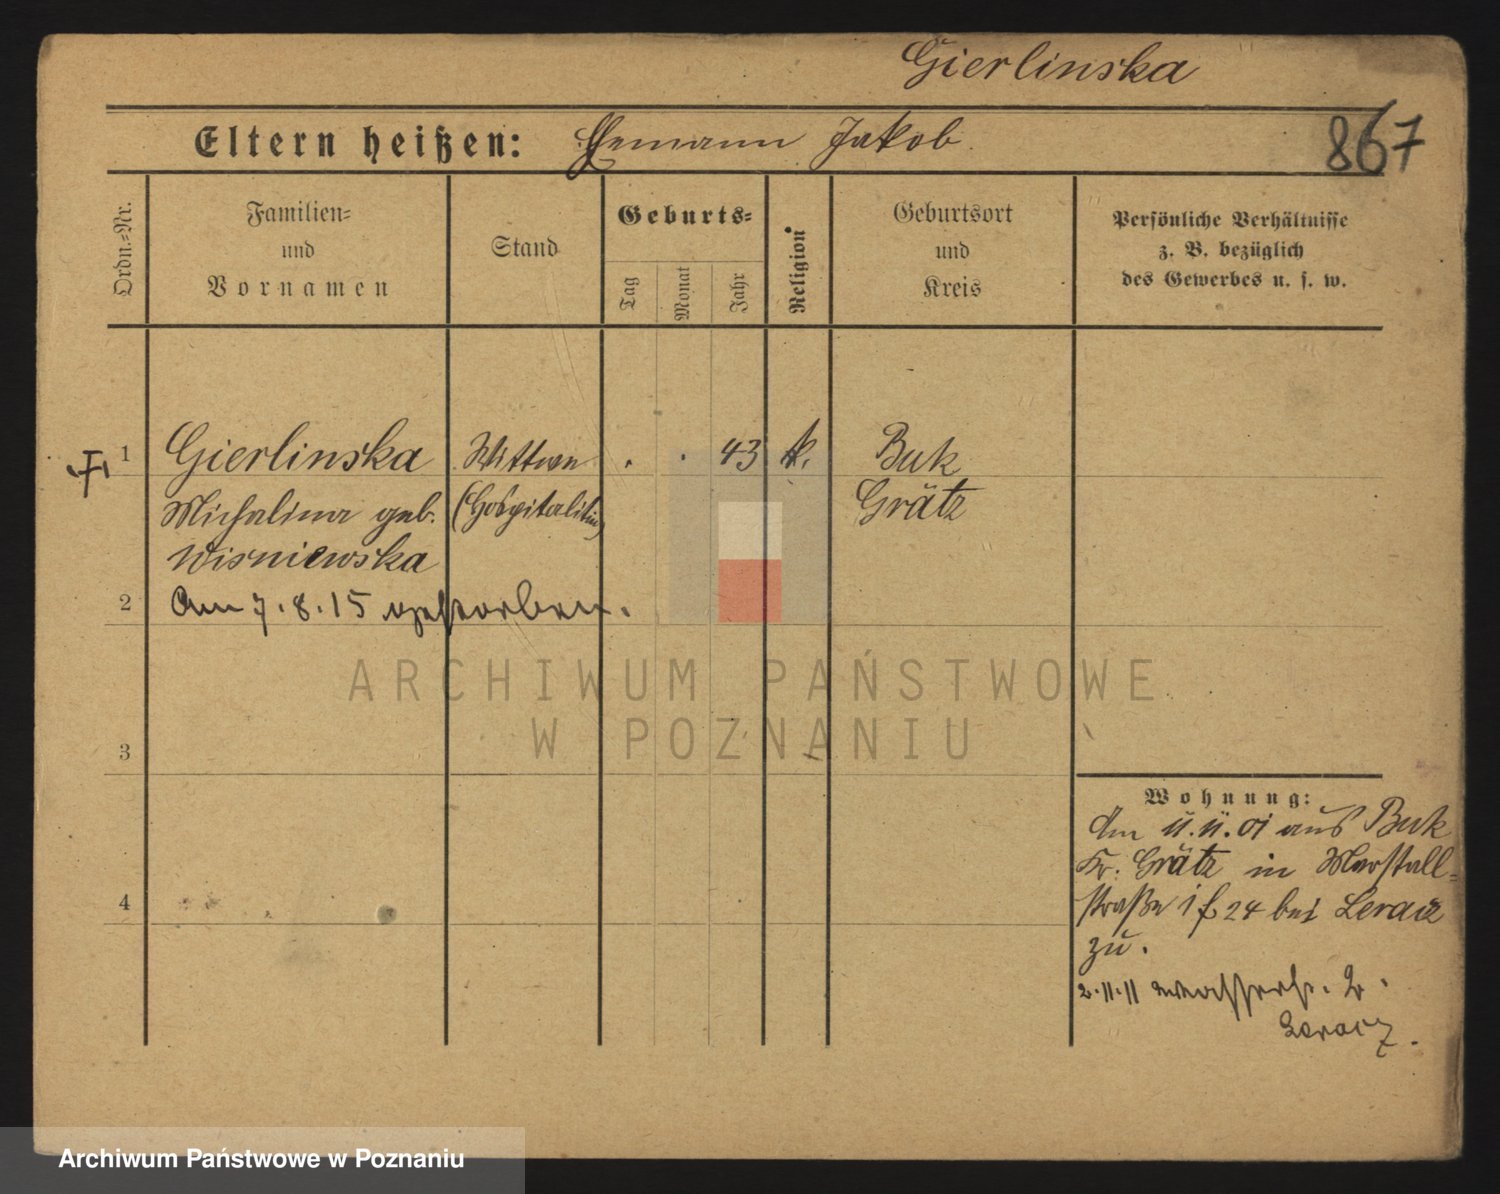 Gierlinska
Eltern heißen: Ehemann Jakob.
867
Ordn.=Nr.
Familien=
und
Vornamen
Stand
Geburts=
Tag
Monat
Jahr
Religion
Geburtsort
und
Kreis
Persönliche Verhältnisse
z. B. bezüglich
des Gewerbes u. s. w.
1 Gierlinska Wittwe . . 43 k. Buk
Michalina geb. (Hospitalitin) Grätz
Wisniewska
2 Am 7.8.15 gestorben.
ARCHIWUM PAŃSTWOWE
W POZNANIU
3
4
Wohnung:
Am aus Buk
Kr. Grätz in Marstall=
straße 24 bei Leracz
zu.
2.11.11 Wasserstr. 2.
Leracz.
Archiwum Państwowe w Poznaniu